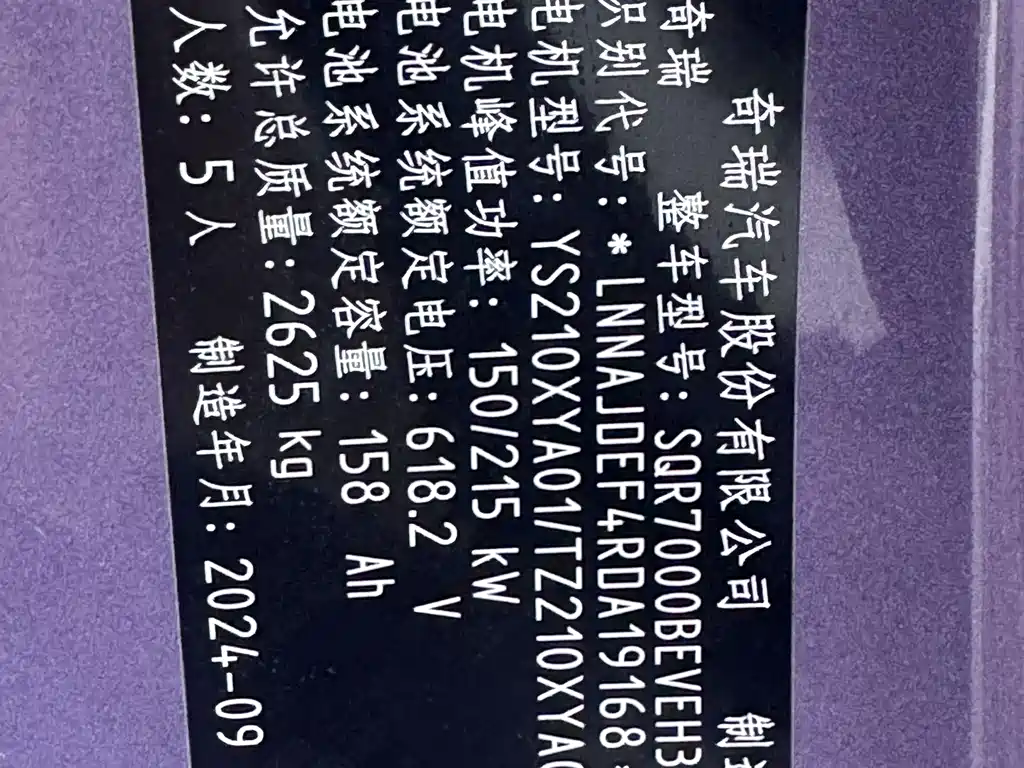 奇瑞汽车股份有限公司 制造
奇瑞 整车型号: SQR7000BEVEH3
识别代号: *LNNAJDEF4RDA19168*
电机型号: YS210XYA01/TZ210XYA0
电机峰值功率: 150/215 kW
电池系统额定电压: 618.2 V
电池系统额定容量: 158 Ah
允许总质量: 2625 kg
人数: 5 人 制造年月: 2024-09